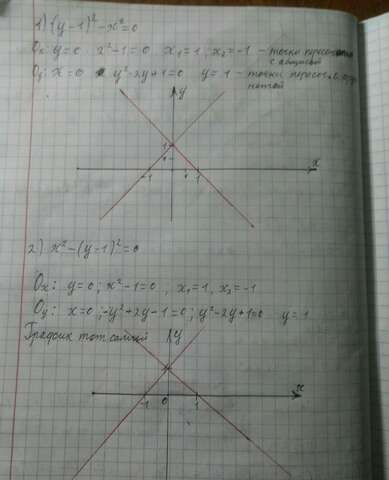 1) (y-1)²-x²=0
Ox y=0 x²-1=0 x₁=1, x₂=-1 - точки пересечения с абциссой
Oy: x=0 y²-2y+1=0 y=1 - точки пересеч. с
y
1
-1 1 x
2) x²-(y-1)²=0
Ox: y=0; x²-1=0, x₁=1, x₂=-1
Oy: x=0; -y²+2y-1=0; y²-2y+1=0 y=1
График тот самый
y
x
-1 0 1